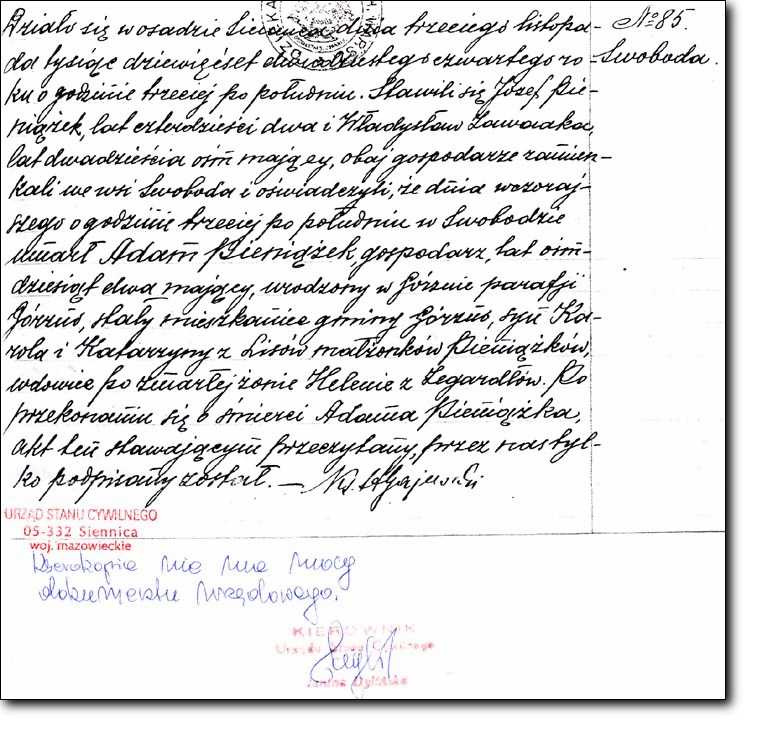 Działo się w osadzie Siennica dnia trzeciego listopa-
da tysiąc dziewięćset dwudziestego czwartego ro-
ku o godzinie trzeciej po południu. Stawili się Józef Pie-
niążek, lat czterdzieści dwa i Władysław Zawadka,
lat dwadzieścia ośm mający, obaj gospodarze zamiesz-
kali we wsi Swoboda i oświadczyli, że dnia wczoraj-
szego o godzinie trzeciej po południu w Swobodzie
umarł Adam Pieniążek gospodarz, lat ośm-
dziesiąt dwa mający, urodzony w Górznie parafji
Górzno, stały mieszkaniec gminy Górzno, syn Ka-
rola i Katarzyny z Lisów małżonków Pieniążków,
wdowiec po zmarłej żonie Helenie z Zegardłów. Po
przekonaniu się o śmierci Adama Pieniążka,
akt ten stawającym przeczytany, przez nas tyl-
ko podpisany został. —
№ 85.
Swoboda.
URZĄD STANU CYWILNEGO
05-332 Siennica
woj. mazowieckie
Kserokopia nie ma mocy
dokumentu urzędowego.
KIEROWNIK
Urzędu Stanu Cywilnego